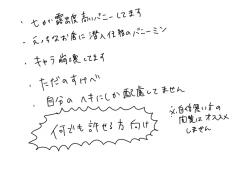 ・七が露出度高いバニーしてます
・えっちなお店に潜入任務のバニーミン
・キャラ崩壊してます
・ただのすけべ
・自分のヘキにしか配慮してません
何でも許せる方向け
※自体無い方の
閲覧はオススメ
しません